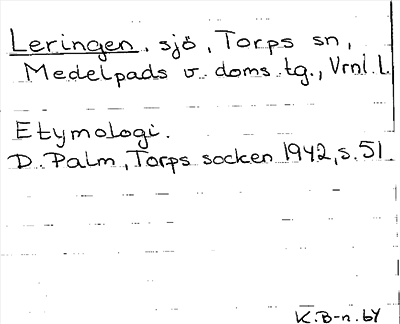 Leringen, sjö, Torps sn,
Medelpads v. doms.tg., Vrnl. l.
Etymologi.
D. Palm, Torps socken 1942, s. 51.
K.B-n. 64